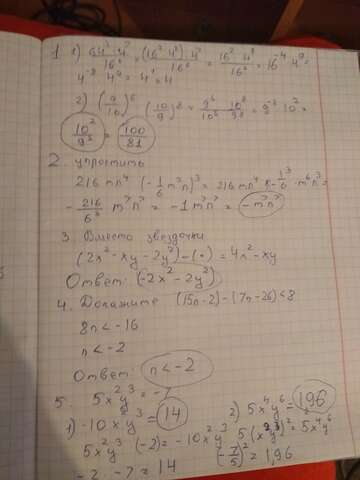 1. 1) 64³·4³/16⁶ = (16³·4³)·4³/16⁶ = 16²·4⁹/16⁶ = 16⁻⁴·4⁹ =
4⁻⁸·4⁹ = 4¹ = 4
2) (9/10)⁶·(10/9)⁸ = 9⁶/10⁶·10⁸/9⁸ = 9⁻²·10² =
10²/9² = 100/81
2. упростить
216 mn⁴ (-1/6 m²n)³ = 216 mn⁴·(-1/6³)·m⁶n³ =
-216/6³ m⁷n⁷ = -1m⁷n⁷ = -m⁷n⁷
3. Вместо звездочки
(2x²-xy-2y²)-(*) = 4x²-xy
Ответ: (-2x²-2y²)
4. Докажите (15n-2)-(7n-26)<8
8n < -16
n < -2
Ответ: n < -2
5. 5x²y³ = -7
1) -10x²y³ = 14
5x²y³·(-2) = -10x²y³
-2·-7 = 14
2) 5x⁴y⁶ = 1,96
5(x²y³)² = 5x⁴y⁶
(-7/5)² = 1,96